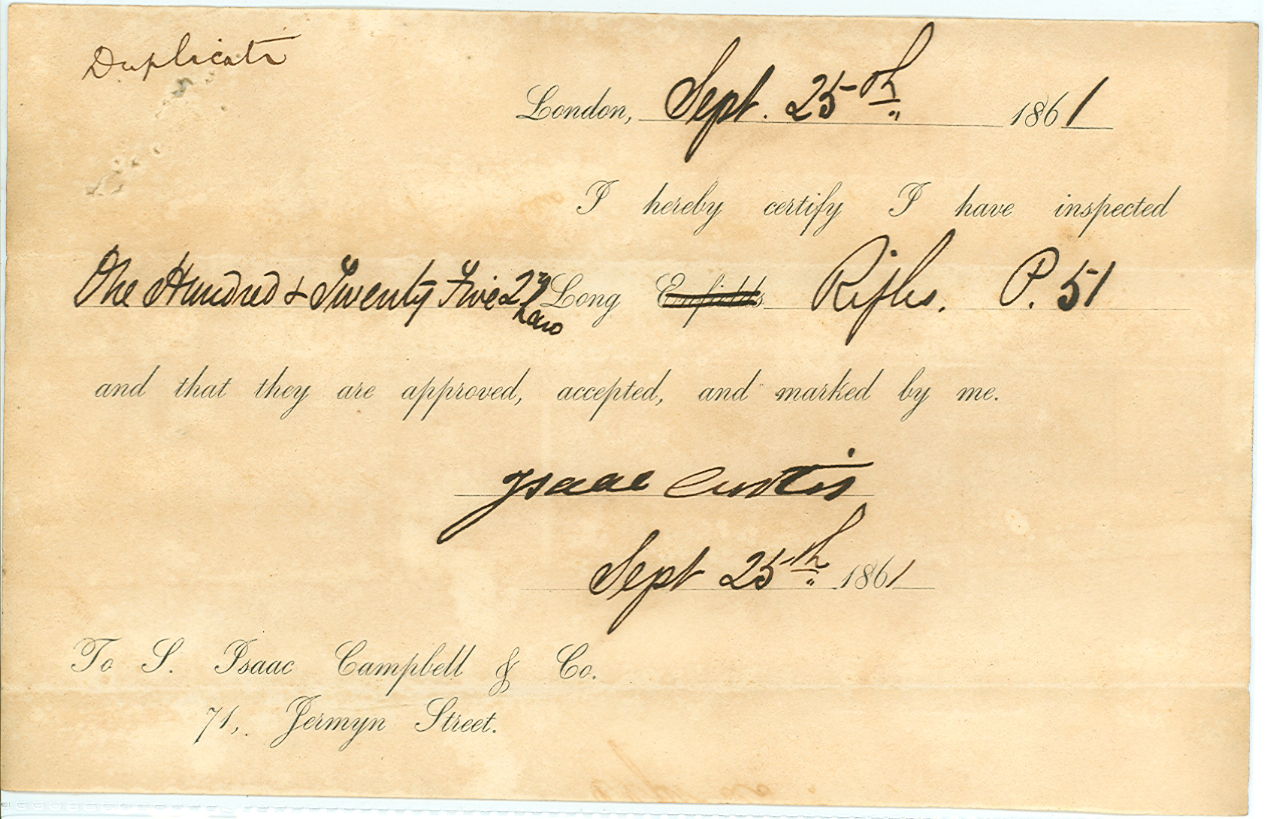 Duplicate
London, Sept. 25th 1861
I hereby certify I have inspected
One Hundred & Twenty Five 2nd Long Enfields Rifles. P. 51
hand
and that they are approved, accepted, and marked by me.
Isaac Curtis
Sept 25th 1861
To S. Isaac Campbell & Co.
71, Jermyn Street.